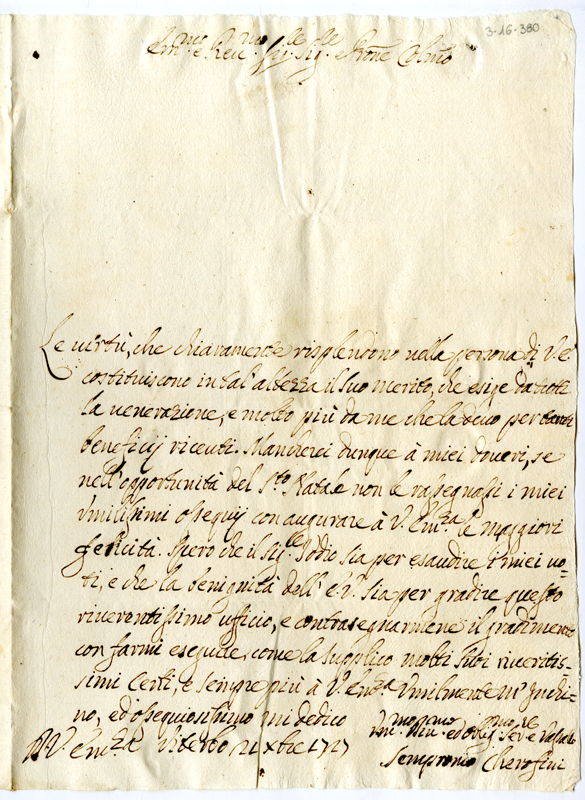 3-16-380
Em.mo e Rev.mo Sig.re Sig.re e Prone Colmo
Le uirtù, che chiaramente risplendono nella persona di V.E.
costituiscono in tal' altezza il suo merito, che esige da tutti
la uenerazione, e molto più da me che la deuo per tanti
beneficij riceuti. Mancherei dunque à miei doueri, se
nell'opportunità del S.to Natale non le rasegnassi i miei
Vmilissimi ossequij con augurare à V. Em.za le maggiori
felicità. Spero che il Sig.re Iddio sia per esaudire i miei uo=
ti, e che la benignità dell' E.V. sia per gradire questo
riuerentissimo ufficio, e contrasegnarmene il gradimento
con farmi eseguire, come la supplico molti suoi riueritis=
simi Cenni, e sempre più à V. Em.za Vmilmente m' Inchi=
no, ed ossequiosissimo mi dedico
D V. Em.za Viterbo 21 Xbre 1727
Um.mo Diu.mo ed Obblig.mo Seru.re
Sempronio Cherofini